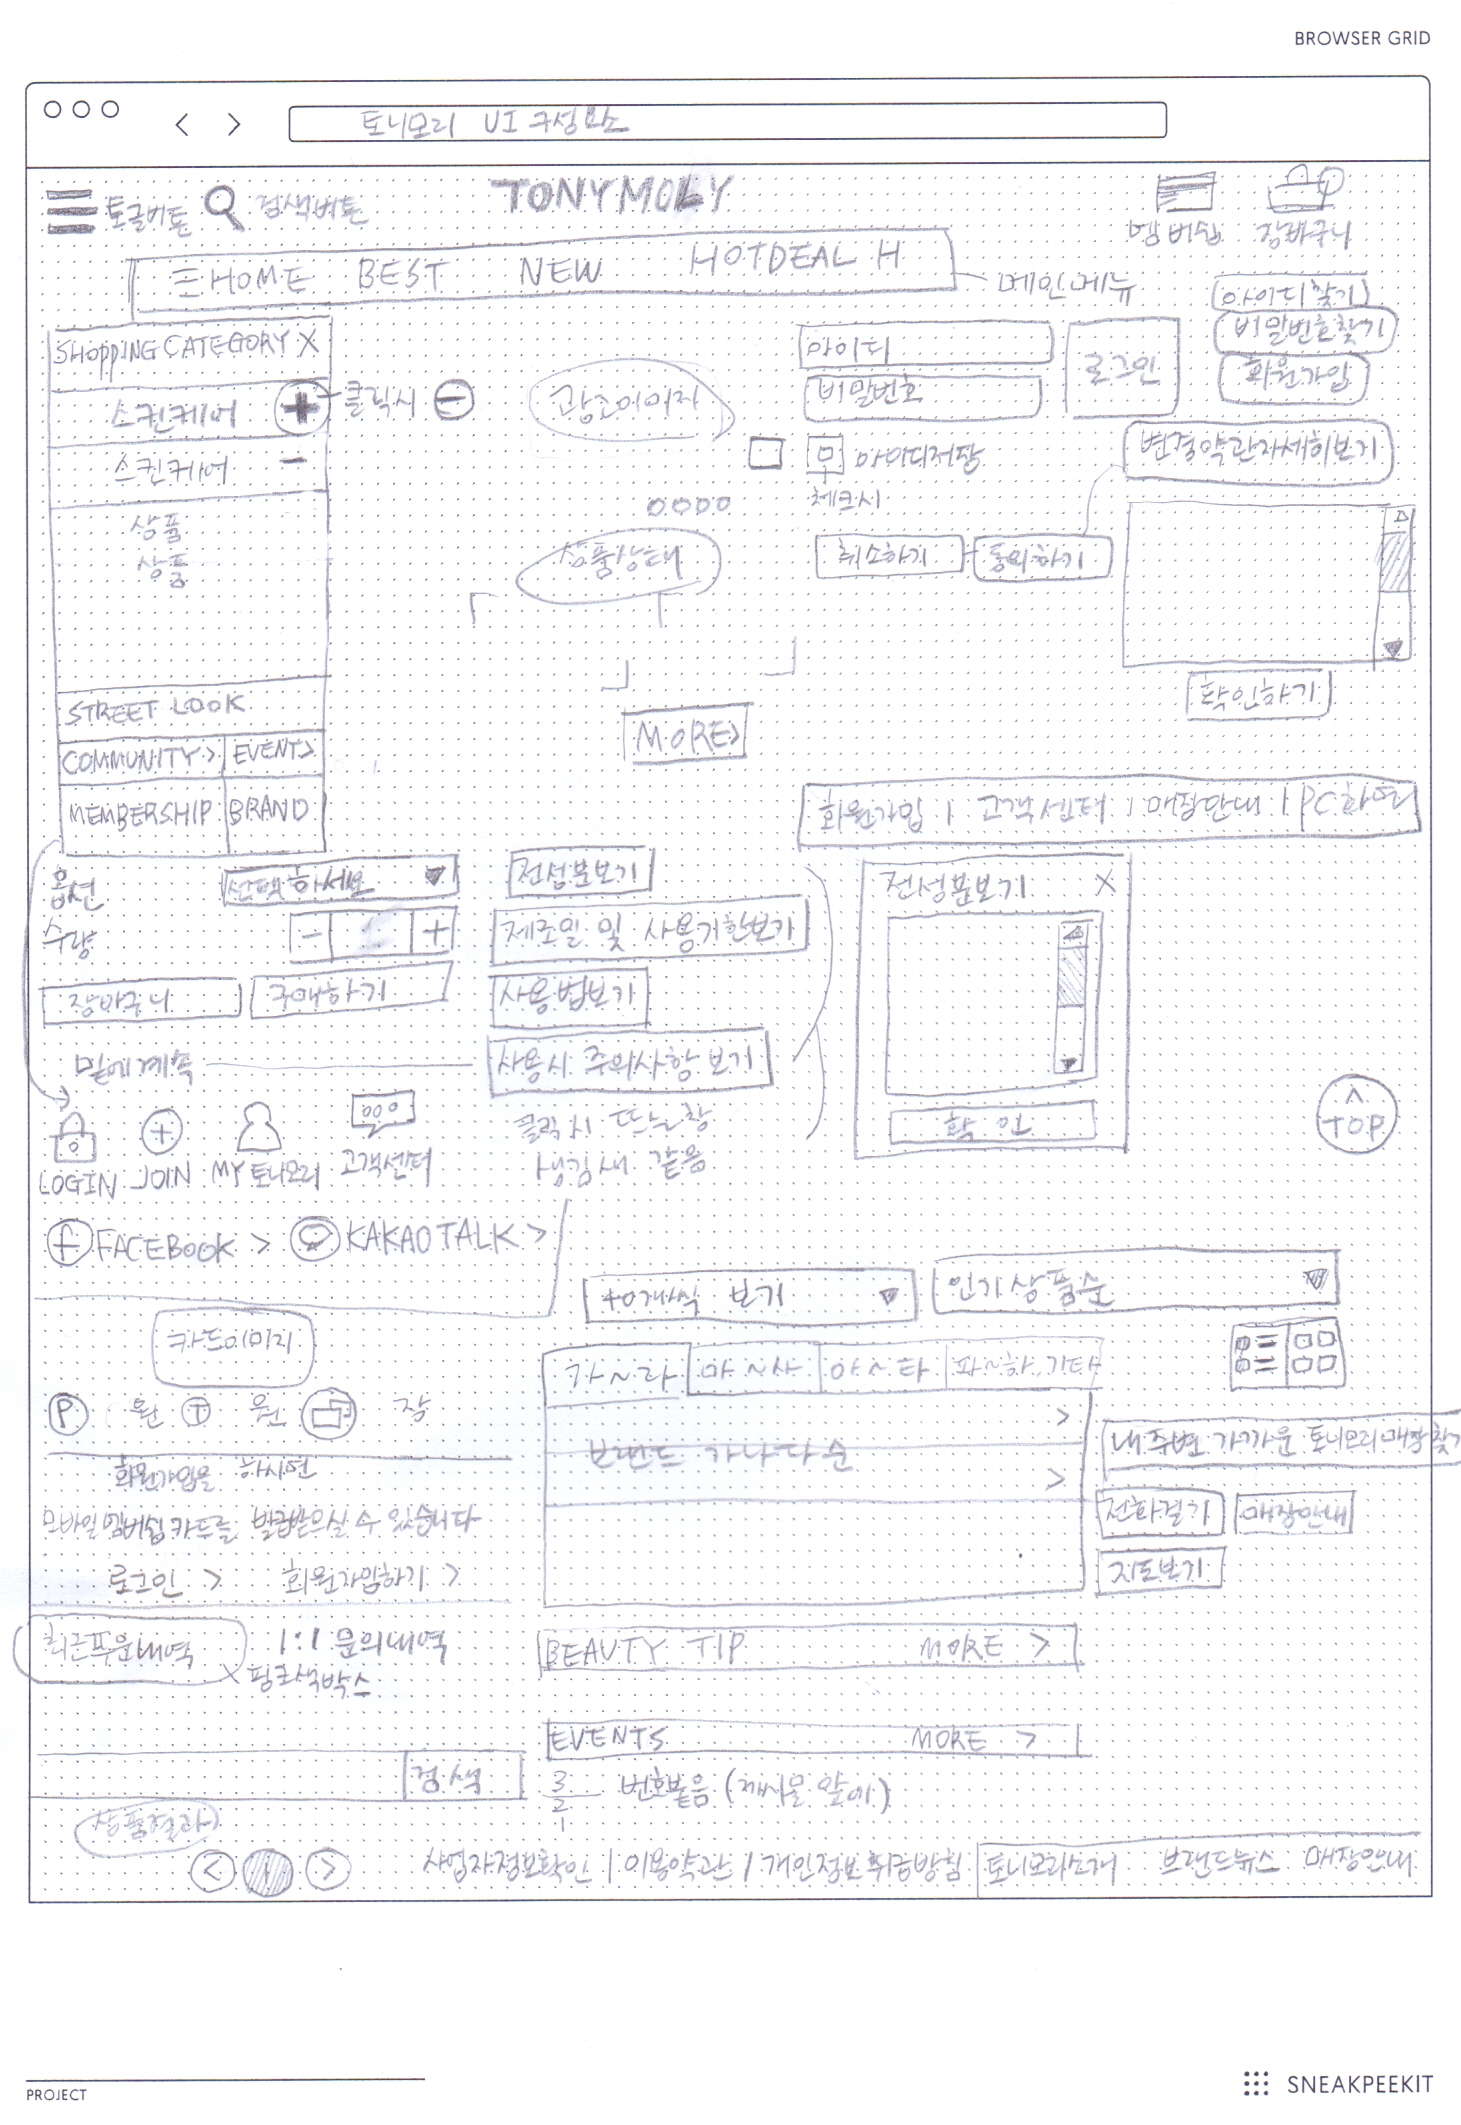 BROWSER GRID
토니모리 UI 구성요소
토글버튼 검색버튼
TONYMOLY
멤버쉽 장바구니
HOME BEST NEW HOTDEAL H
메인메뉴
SHOPPING CATEGORY X
스킨케어 + 클릭시 −
스킨케어 −
상품
상품
STREET LOOK
COMMUNITY > EVENT >
MEMBERSHIP BRAND
광고이미지
상품상태
MORE>
아이디
비밀번호
로그인
아이디찾기
비밀번호찾기
회원가입
아이디저장
체크시
변경약관자세히보기
취소하기 동의하기
확인하기
회원가입 | 고객센터 | 매장안내 | PC화면
옵션 선택하세요
수량 − 1 +
장바구니 구매하기
밑에계속
전성분보기
제조일 및 사용기한보기
사용법보기
사용시 주의사항 보기
클릭시 뜨는창
생김새 같음
전성분보기 X
확인
^
TOP
LOGIN JOIN MY토니모리 고객센터
f FACEBOOK > KAKAOTALK >
카드이미지
P 원 T 원 장
회원가입을 하시면
모바일멤버쉽카드를 발급받으실 수 있습니다
로그인 > 회원가입하기 >
최근주문내역 1:1 문의내역
핑크색박스
검색
상품결과
< 1 >
40개씩 보기 인기상품순
가~라 마~사 아~타 파~하 기타
>
브랜드 가나다순
>
내 주변 가까운 토니모리매장찾기
전화걸기 매장안내
지도보기
BEAUTY TIP MORE >
EVENTS MORE >
3
2
1
번호붙음 (게시물 앞에)
사업자정보확인 | 이용약관 | 개인정보취급방침 토니모리소개 브랜드뉴스 매장안내
PROJECT
SNEAKPEEKIT